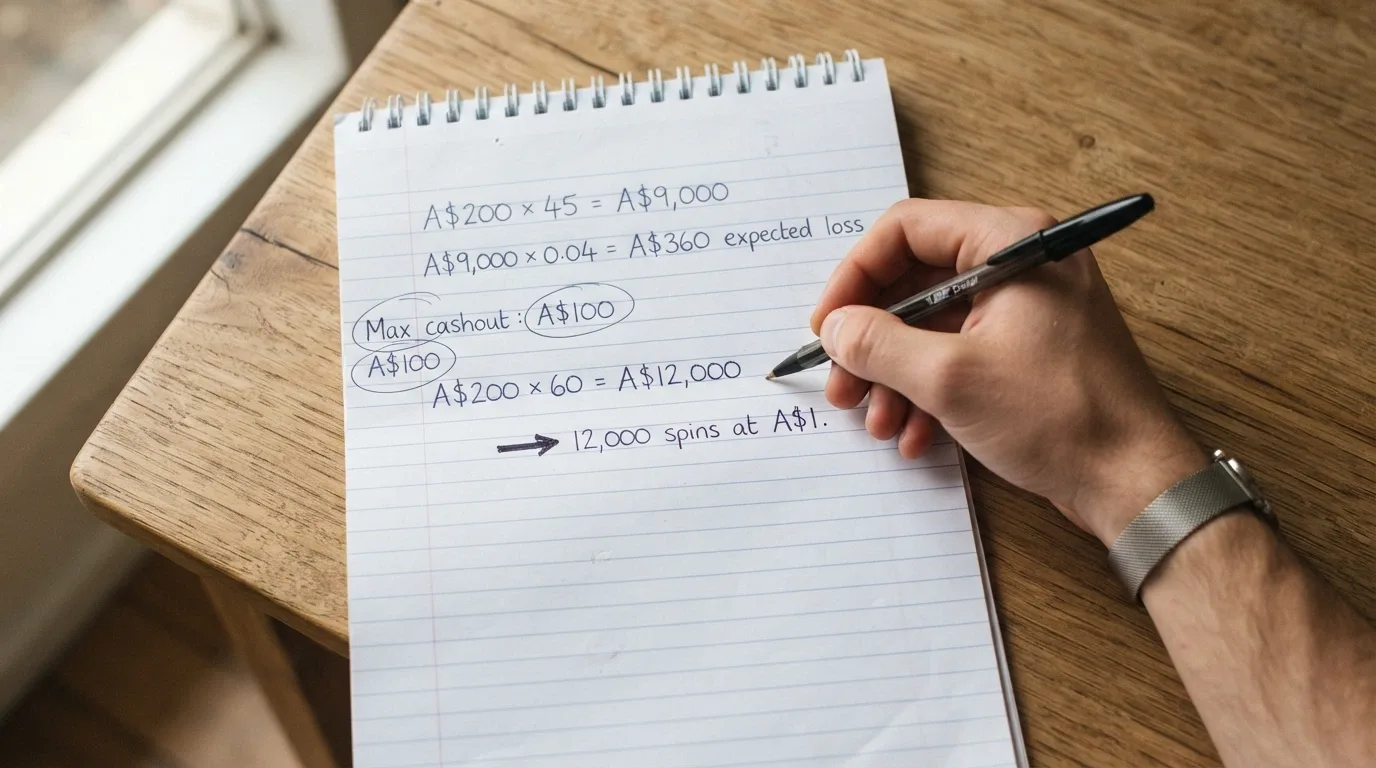 A$200 × 45 = A$9,000
A$9,000 × 0.04 = A$360 expected loss
Max cashout: A$100
A$100
A$200 × 60 = A$12,000
→ 12,000 spins at A$1.